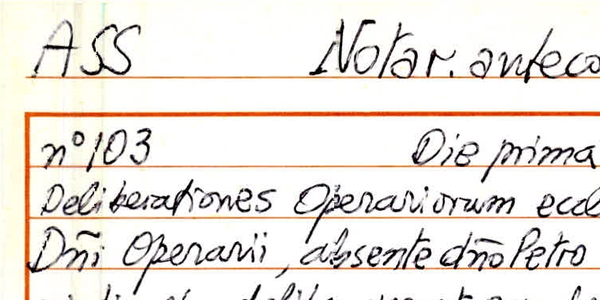 ASS Notar. anteco
nº 103 Die prima
Deliberationes Operariorum eccl
Dñi Operarii, absente dño Petro